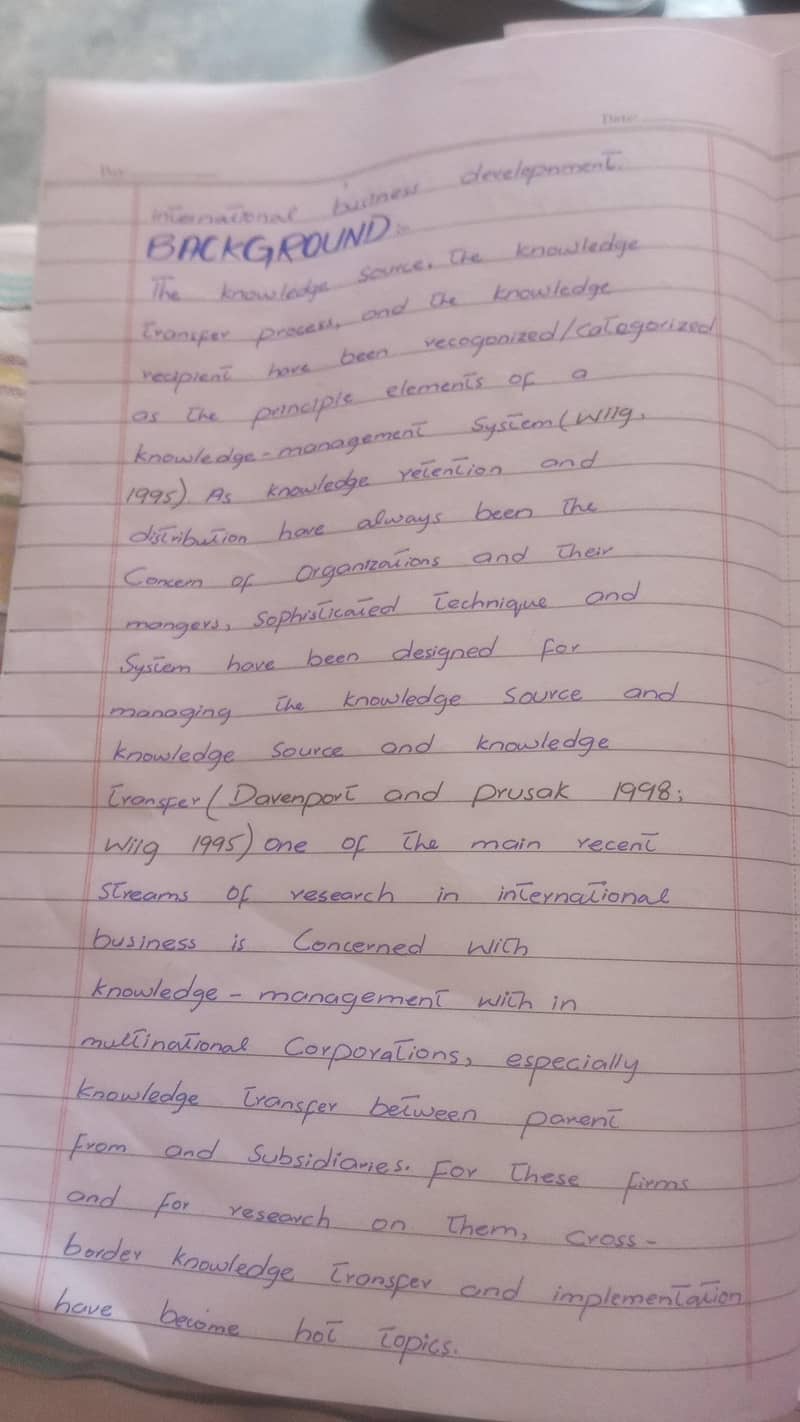 Day
Date:
international business development.
BACKGROUND:-
The knowledge source, the knowledge
transfer process, and the knowledge
recipient have been recogonized/categorized
as the principle elements of a
knowledge-management system (Wilg,
1995) As knowledge retention and
distribution have always been the
Concern of organizations and their
mangers, sophisticated technique and
System have been designed for
managing the knowledge source and
knowledge source and knowledge
transfer (Davenport and prusak 1998;
Wilg 1995) one of the main recent
streams of research in international
business is Concerned with
knowledge-management with in
multinational Corporations, especially
knowledge transfer between parent
from and subsidiaries. For these firms
and for research on them, cross-
border knowledge transfer and implementation
have become hot topics.